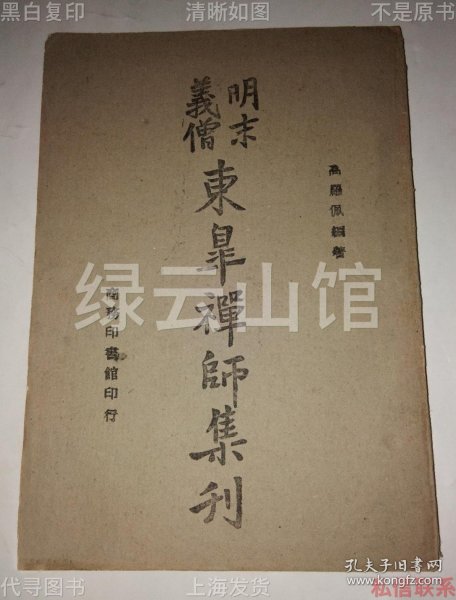 黑白复印
清晰如图
不是原书
明末
義僧
東皐禪師集刊
高羅佩編著
商務印書館印行
绿云山馆
孔夫子旧书网
www.kongfz.com
代寻图书
上海发货
私信联系